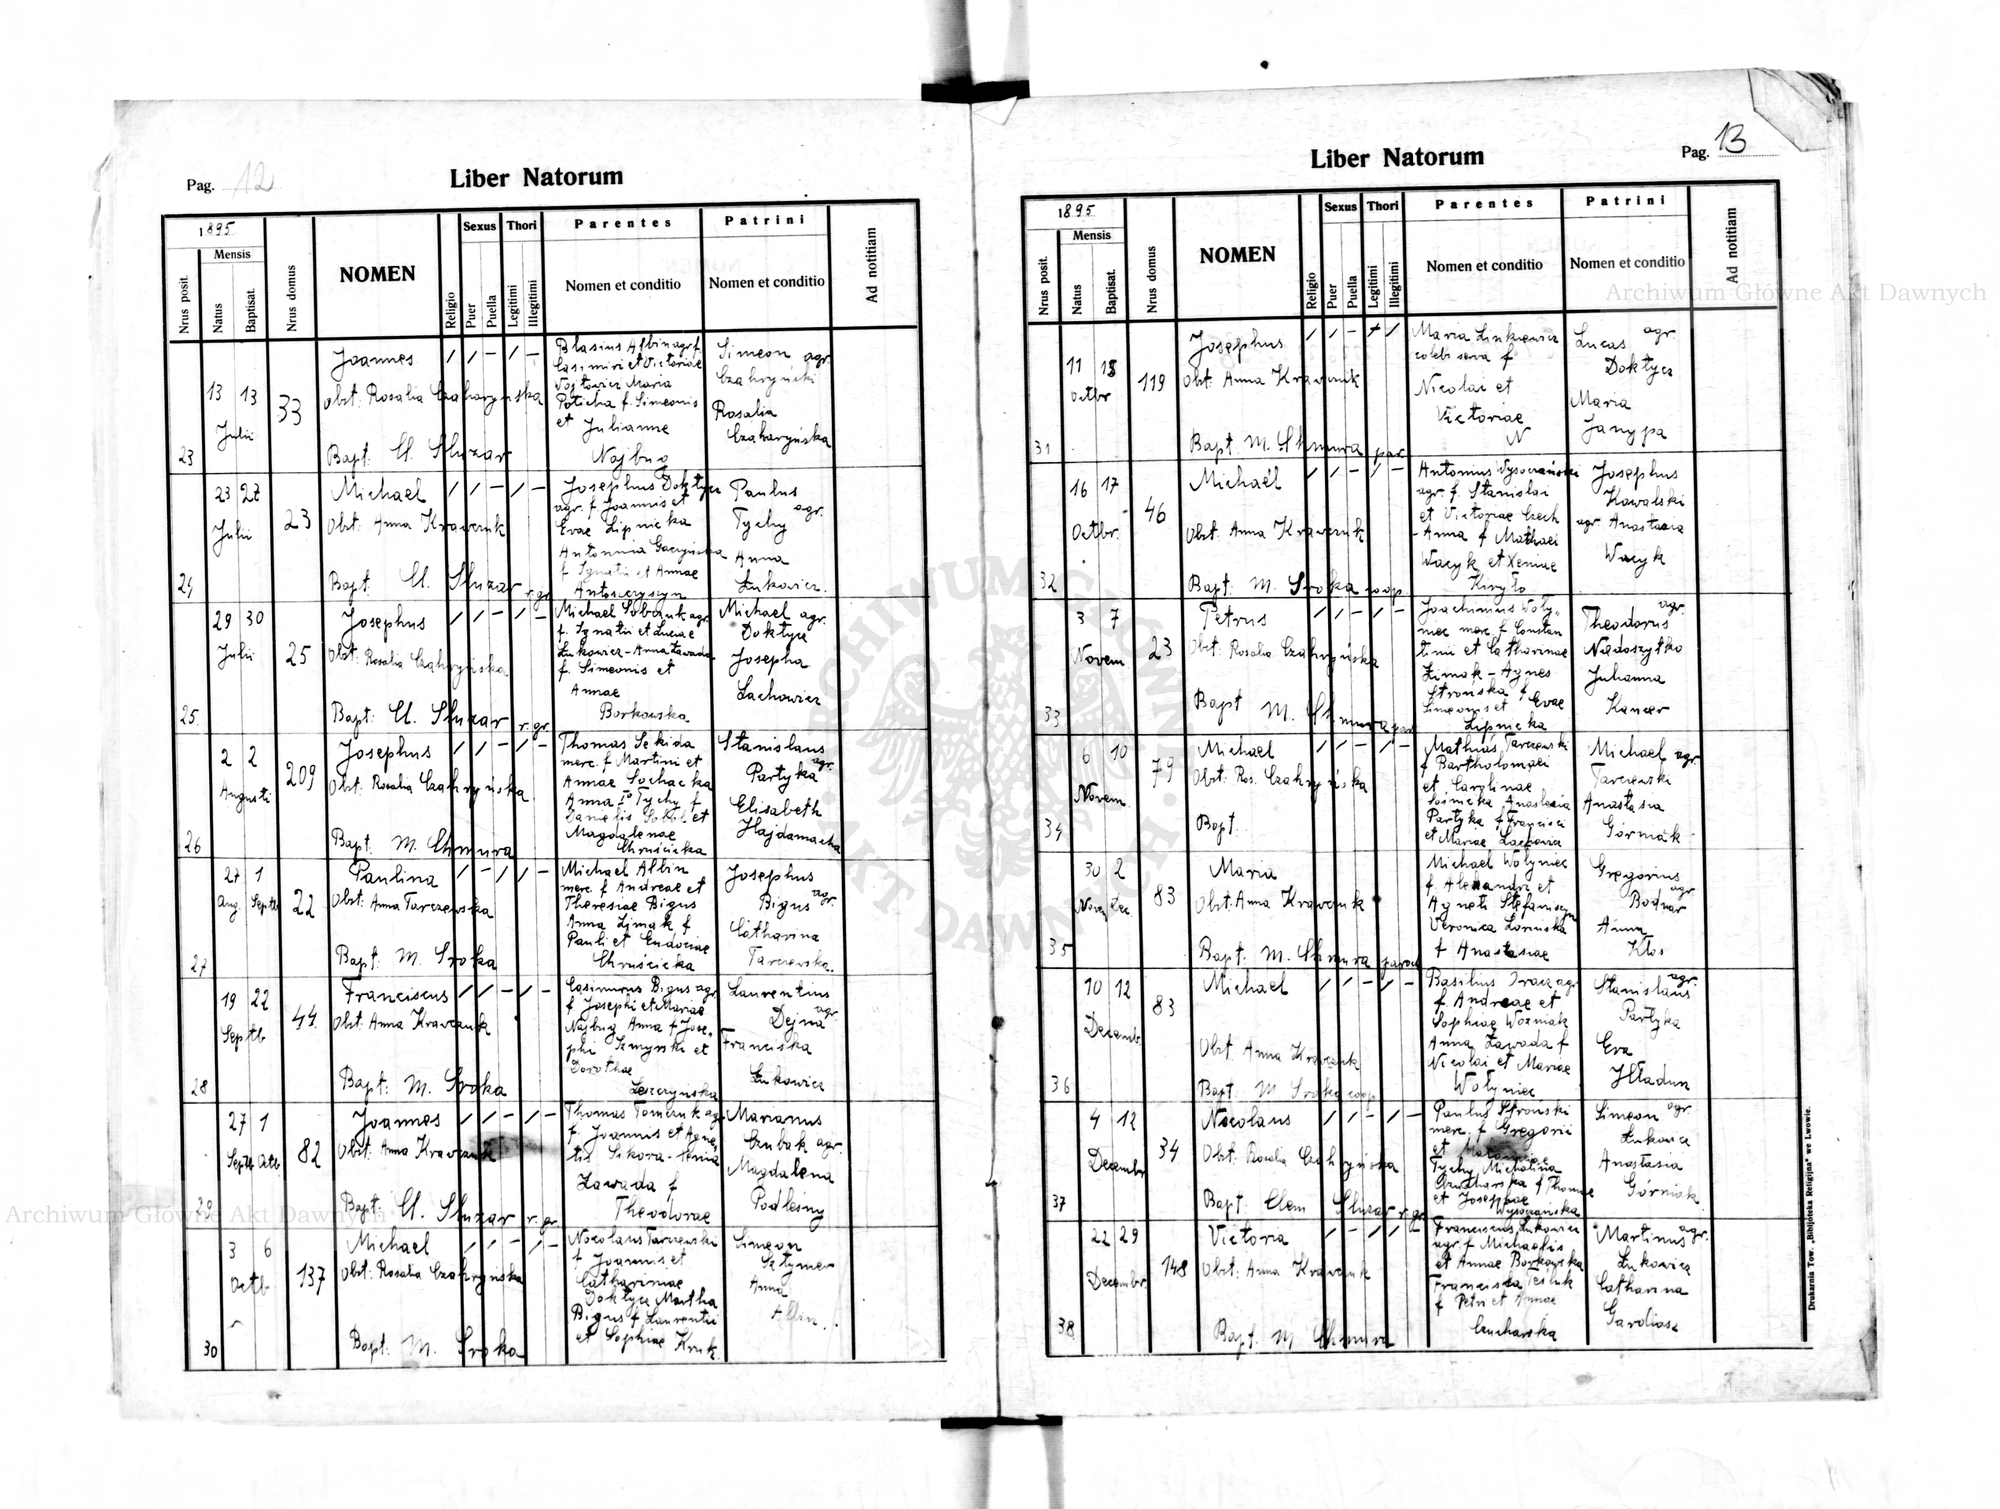 Pag. 12
Liber Natorum
1895
Mensis
Nrus posit.
Natus
Baptisat.
Nrus domus
NOMEN
Religio
Sexus
Puer
Puella
Thori
Legitimi
Illegitimi
Parentes
Nomen et conditio
Patrini
Nomen et conditio
Ad notitiam
23
13 13
Julii
33
Joannes
Obst: Rosalia Czahryńska
Bapt: Cl. Sluzar
Blasius Albin agr. f.
Casimiri et Victoriae
Wojtowicz Maria
Poticha f. Simeonis
et Julianne
Najbug
Simeon agr.
Czahryński
Rosalia
Czaharyńska
24
23 27
Julii
23
Michael
Obst: Anna Krawczuk
Bapt Cl. Sluzar r. gr.
Josephus Doktycz
agr. f. Joannis et
Evae Lipnicka
Antonina Gaczyńska
f Ignatii et Annae
Antoszczyszyn
Paulus
agr.
Tychy
Anna
Łukowicz
25
29 30
Julii
25
Josephus
Obst: Rosalia Czahryńska
Bapt: Cl. Sluzar r. gr.
Michael Sobczuk agr.
f. Ignatii et Luciae
Łukowicz - Anna Zawada
f. Simeonis et
Annae
Borkowska
Michael agr.
Doktycz
Josepha
Lachowicz
26
2 2
Augusti
209
Josephus
Obst: Rosalia Czahryńska
Bapt: M. Chmura
Thomas Sekida
merc. f Martini et
Annae Sochacka
Anna Tychy f
Danielis Sobol et
Magdalenae
Chruścicka
Stanislaus
agr.
Partyka
Elisabeth
Hajdamacka
27
27 1
Aug. Septb
22
Paulina
Obst: Anna Tarczewska
Bapt: M. Sroka
Michael Albin
merc. f Andreae et
Theresiae Bigus
Anna Zimak f
Pauli et Eudociae
Chruścicka
Josephus
agr.
Bigus
Catharina
Tarczewska
28
19 22
Septb
44
Franciscus
Obst: Anna Krawczuk
Bapt: M. Sroka
Casimirus Bigus agr
f Josephi et Mariae
Najbug Anna f Jose-
phi Szmyrski et
Dorothae
Leszczynska
Laurentius
agr.
Dejna
Franciska
Łukowicz
29
27 1
Septb Octb
82
Joannes
Obst: Anna Krawczuk
Bapt: Cl. Sluzar r. gr.
Thomas Tomczuk agr
f. Joannis et Agne-
tis Sikora - Xenia
Zawada f
Theodorae
Marianus
Czubak agr.
Magdalena
Podleśny
30
3 6
Octb
137
Michael
Obst: Rosalia Czahryńska
Bapt: M. Sroka
Nicolaus Tarczewski
f Joannis et
Catharinae
Doktycz Martha
Bigus f Laurentii
et Sophiae Kruk
Simeon
Sztymer
Anna
Albin
Pag. 13
Liber Natorum
1895
Mensis
Nrus posit.
Natus
Baptisat.
Nrus domus
NOMEN
Religio
Sexus
Puer
Puella
Thori
Legitimi
Illegitimi
Parentes
Nomen et conditio
Patrini
Nomen et conditio
Ad notitiam
31
11 18
Octbr
119
Josephus
Obst: Anna Krawczuk
Bapt. M. Chmura par
Maria Linkiewicz
f
Nicolai et
Victoriae
N
Lucas agr
Doktycz
Maria
Janypa
32
16 17
Octbr.
46
Michaël
Obst: Anna Krawczuk
Bapt: M. Sroka coop
Antonius Wysoczański
agr. f. Stanislai
et Victoriae Czech
- Anna f Mathaei
Wacyk et Xeniae
Kiryło
Josephus
Kowalski
agr Anastasia
Wacyk
33
3 7
Novem
23
Petrus
Obst: Rosalia Czahryńska
Bapt M. Chmura par
Joachimus Woły-
niec merc. f Constan
tini et Catharinae
Zimak - Agnes
Strońska f
Simeonis et Evae
Lipnicka
agr.
Theodorus
Nadoszytko
Julianna
Kancer
34
6 10
Novem
79
Michael
Obst: Ros. Czahryńska
Bapt.
Mathias Tarczewski
f Bartholomaei
et Carolinae
Sośnicka Anastasia
Partyka f Francisci
et Mariae Lachowicz
Michael agr.
Tarczewski
Anastasia
Górniak
35
30 2
Novem Dec
83
Maria
Obst: Anna Krawczuk
Bapt. M. Chmura paroch
Michael Wołyniec
f. Alexandri et
Agneti Stefaniszyn
Veronica
f Anastasiae
Gregorius
agr
Bodnar
Anna
Kłos
36
10 12
Decemb.
83
Michael
Obst Anna Krawczuk
Bapt. M Sroka coop
Basilius Iracz agr
f Andreae et
Sophiae Woźniak
Anna Zawada f
Nicolai et Mariae
Wołyniec
agr.
Stanislaus
Partyka
Eva
Hładun
37
4 12
Decembr
34
Nicolaus
Obst: Rosalia Czahryńska
Bapt: Clem Sluzar r. gr.
Paulus Stronski
merc. f Gregorii
et
Tychy Michalina
f Thomae
et Josephae
Wysoczańska
Simeon agr.
Łukowicz
Anastasia
Górniak
38
22 29
Decembr.
148
Victoria
Obst: Anna Krawczuk
Bapt. M Chmura
Franciscus Łukowicz
agr. f Michaelis
et Annae Borkowska
Franciska Tesluk
f Petri et Annae
Czucharska
Martinus agr.
Łukowicz
Catharina
Gardiasz
Drukarnia Tow. „Bibljoteka Religijna" we Lwowie.
Archiwum Główne Akt Dawnych
Archiwum Główne Akt Dawnych
ARCHIWUM GŁÓWNE
AKT DAWNYCH